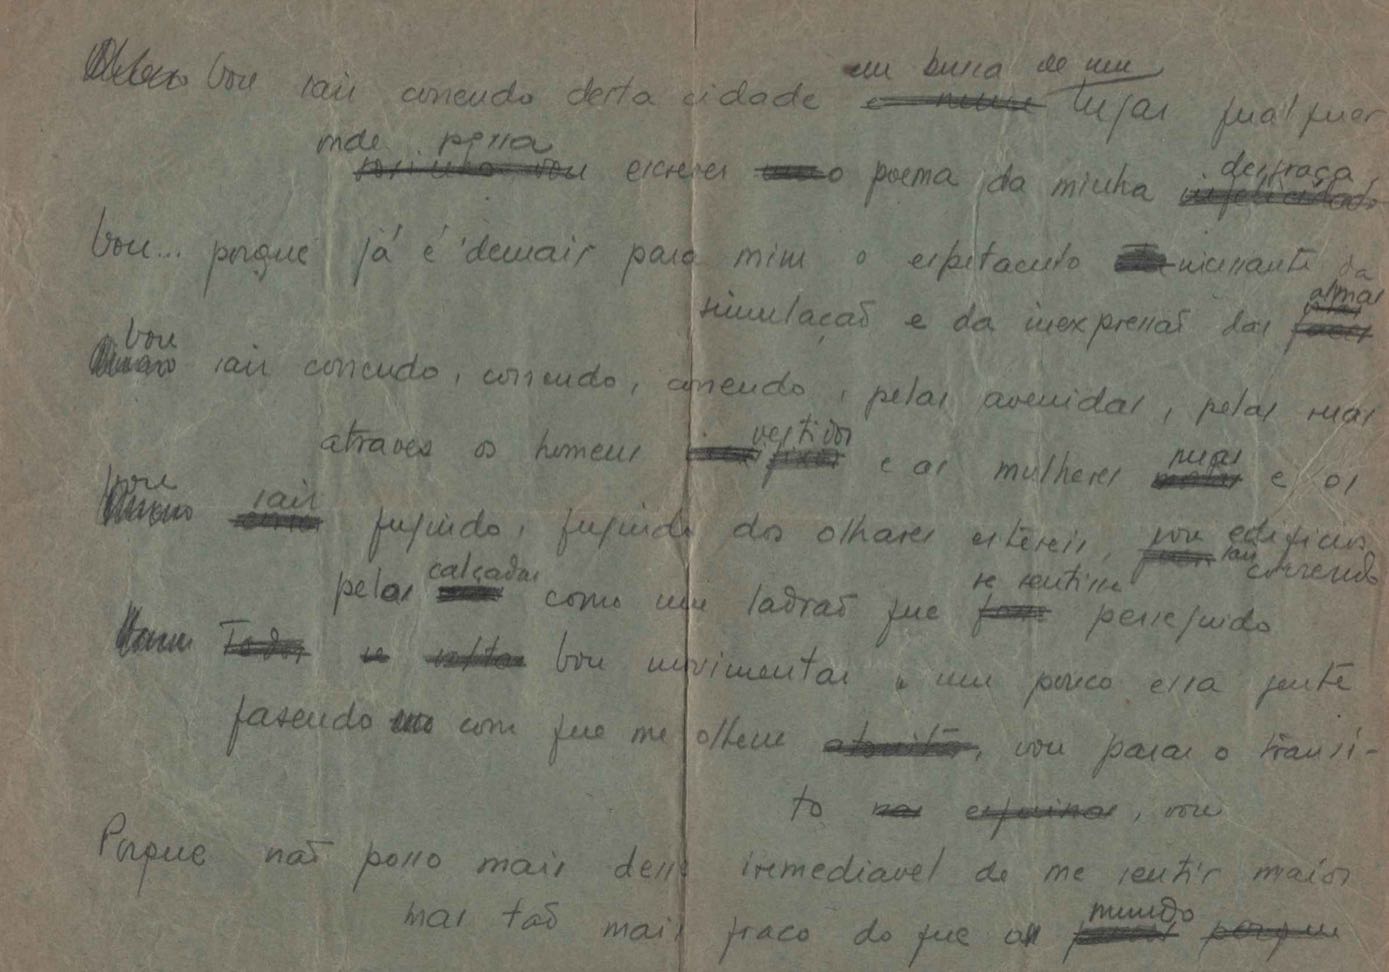 em busca de um
Vou sair correndo desta cidade lugar qualquer
onde possa
sozinho vou escrever o poema da minha desgraça
infelicidade
Vou... porque já é demais para mim o espetaculo incessante da
simulação e da inexpressão das almas
faces
vou
sair correndo, correndo, correndo, pelas avenidas, pelas ruas
atraves os homens vestidos e as mulheres nuas e os
edificios,
vou sair fugindo, fugindo dos olhares estereis, vou sair correndo
pelas calçadas como um ladrão que se sentisse perseguido
Todos se volta Vou movimentar um pouco essa gente
fazendo com que me olhem atonita, vou parar o transi-
to nas esquinas, vou
Porque não posso mais desse irremediavel de me sentir maior
mas tão mais fraco do que o mundo porque